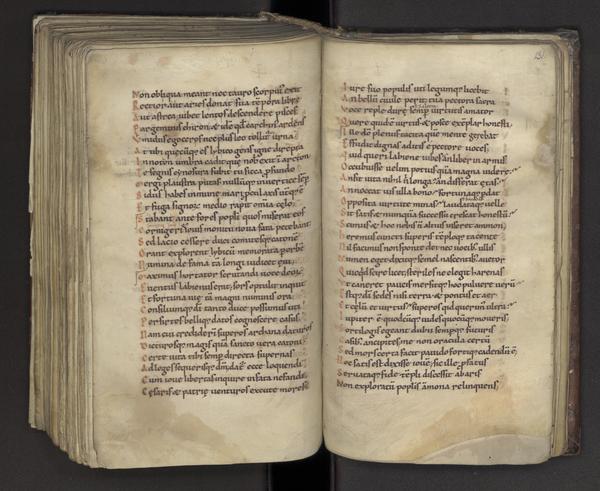 Non obliqua meant nec tauro scorpius exit
Rectior aut aries donat sua tēpora librę
Aut astrea iubet lentos descendere pisces
Par geminis chiron & idē qđ carchinos ardens
Humidus egoceros nec plus leo tollit urna
At tibi quęcūq; es lybico gens igne dirempta
In noton umbra cadit quę nobis exit in arcton
Te segnis cynosura subit tu sicca pfundo
Mergi plaustra putas nullūq; in uertice sēp
Sidus habes inmune mari pcul axis uterq; ē
Et fuga signoꝝ medio rapit omnia cęlo
Stabant ante fores popli quos miserat eos
Cornigeriq; iouis monitu noua fata petebant
Sed latio cessere duci comitesq; catonē
Orant explor& lybicū memorata p orbē
Numina de fama tā longi iudic& ęui
Maximus hortator scrutandi uoce deoꝝ
Euentus labienus erat sors optulit inquit
Et fortuna uię tā magni numinis ora
Consiliumq; di tanto duce possumus uti
Per sirtes belliq; datos cognoscere casus
Nam cui crediderī superos archana daturos
Dicturosq; magis quā sancto uera catoni
Certe uita tibi semp directa supernas
Ad leges sequerisq; dm̄ dat ecce loquendi
Cum ioue libertas inquire in fata nefandi
Cęsaris & patrię uenturos excute mores
Iure suo populis uti legumq; licebit
An bellū ciuile perit tua pectora sacra
Voce reple durę semp uirtutis amator
Quere quid ē uirtus & posce exēplar honesti
Ille dō plenus tacita quē mente gerebat
Effudit dignas aditis e pectore uoces
Quid queri labiene iubes an liber in armis
Occubuisse uelim potius quā regna uidere
An sit uita nihil & longa an differat ętas
An noceat uis ulla bono fortunaq; pdat
Opposita uirtute minas laudandaq; uelle
Sit satis & nunquā successu crescat honestū
Scimus & hoc nobis ñ altius inser& ammon
Heremus cuncti superis tēploq; tacente
Nil facimus non sponte dei nec uocib; ullis
Numen eget dixitq; semel nascentib; auctor
Quicqđ scire licet steriles nec elegit harenas
Vt caner& paucis mersitq; hoc puluere uerū
Estq; dī sedes nisi terra & pontus & aer
Et cęlū & uirtus superos quid querim ultra
Iuppiter ē quodcūq; uides quocūq; moueris
Sortilegis egeant dubii sempq; futuris
Casib; ancipites me non oracula certū
Sed mors certa facit pauido fortiq; cadendū ē
Hoc satis ē dixisse iouē sic ille pfatus
Seruataq; fide tēpli discessit ab aris
Non exploratū poplis āmona relinquens